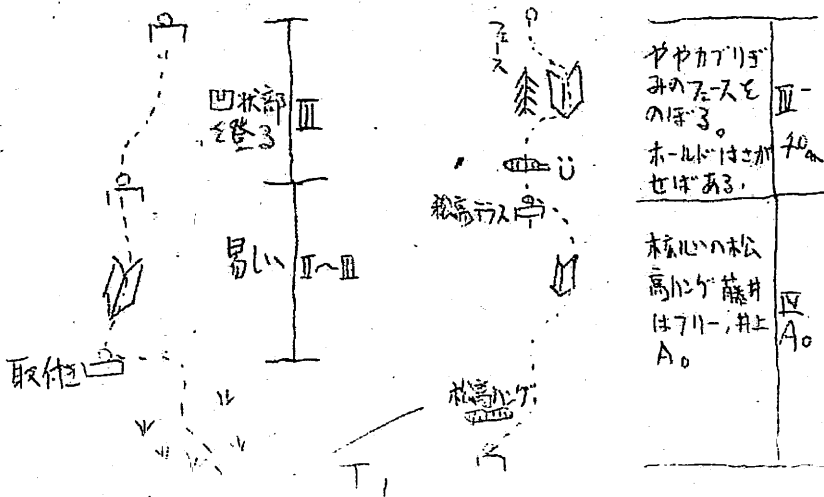 凹状部
を登る
III
易しい
II〜III
取付き
フェース
松高テラス
松高ハング
T1
ややカブリぎ
みのフェースを
のぼる。
ホールドはさが
せばある。
III-
40m
核心の松
高ハング藤井
はフリー,井上
A0
IV
A0